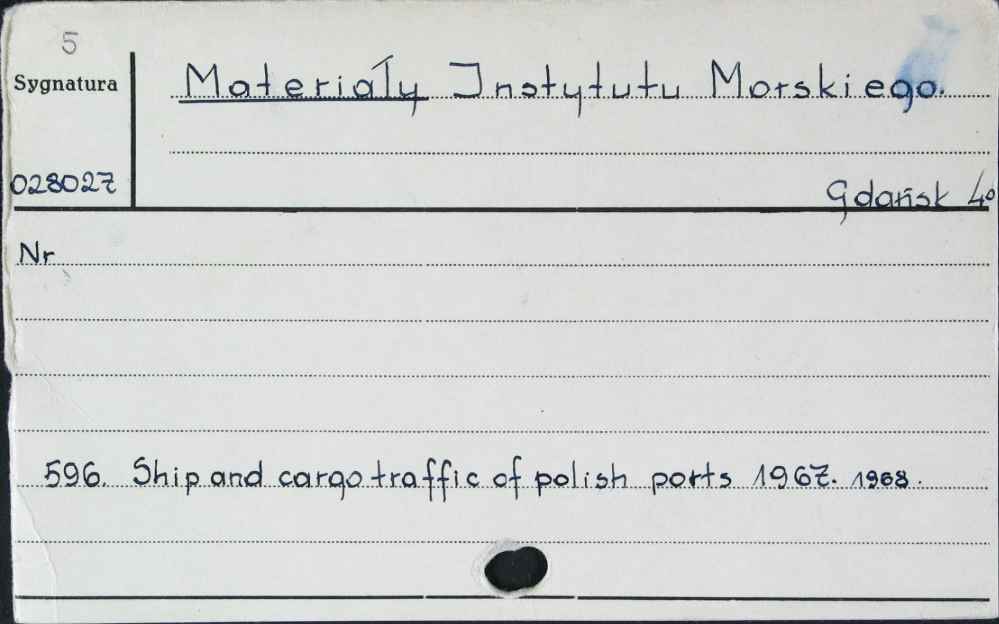 5
Sygnatura
Materiały Instytutu Morskiego.
028027
Gdańsk 4°
Nr
596. Ship and cargo traffic of polish ports 1967. 1968.